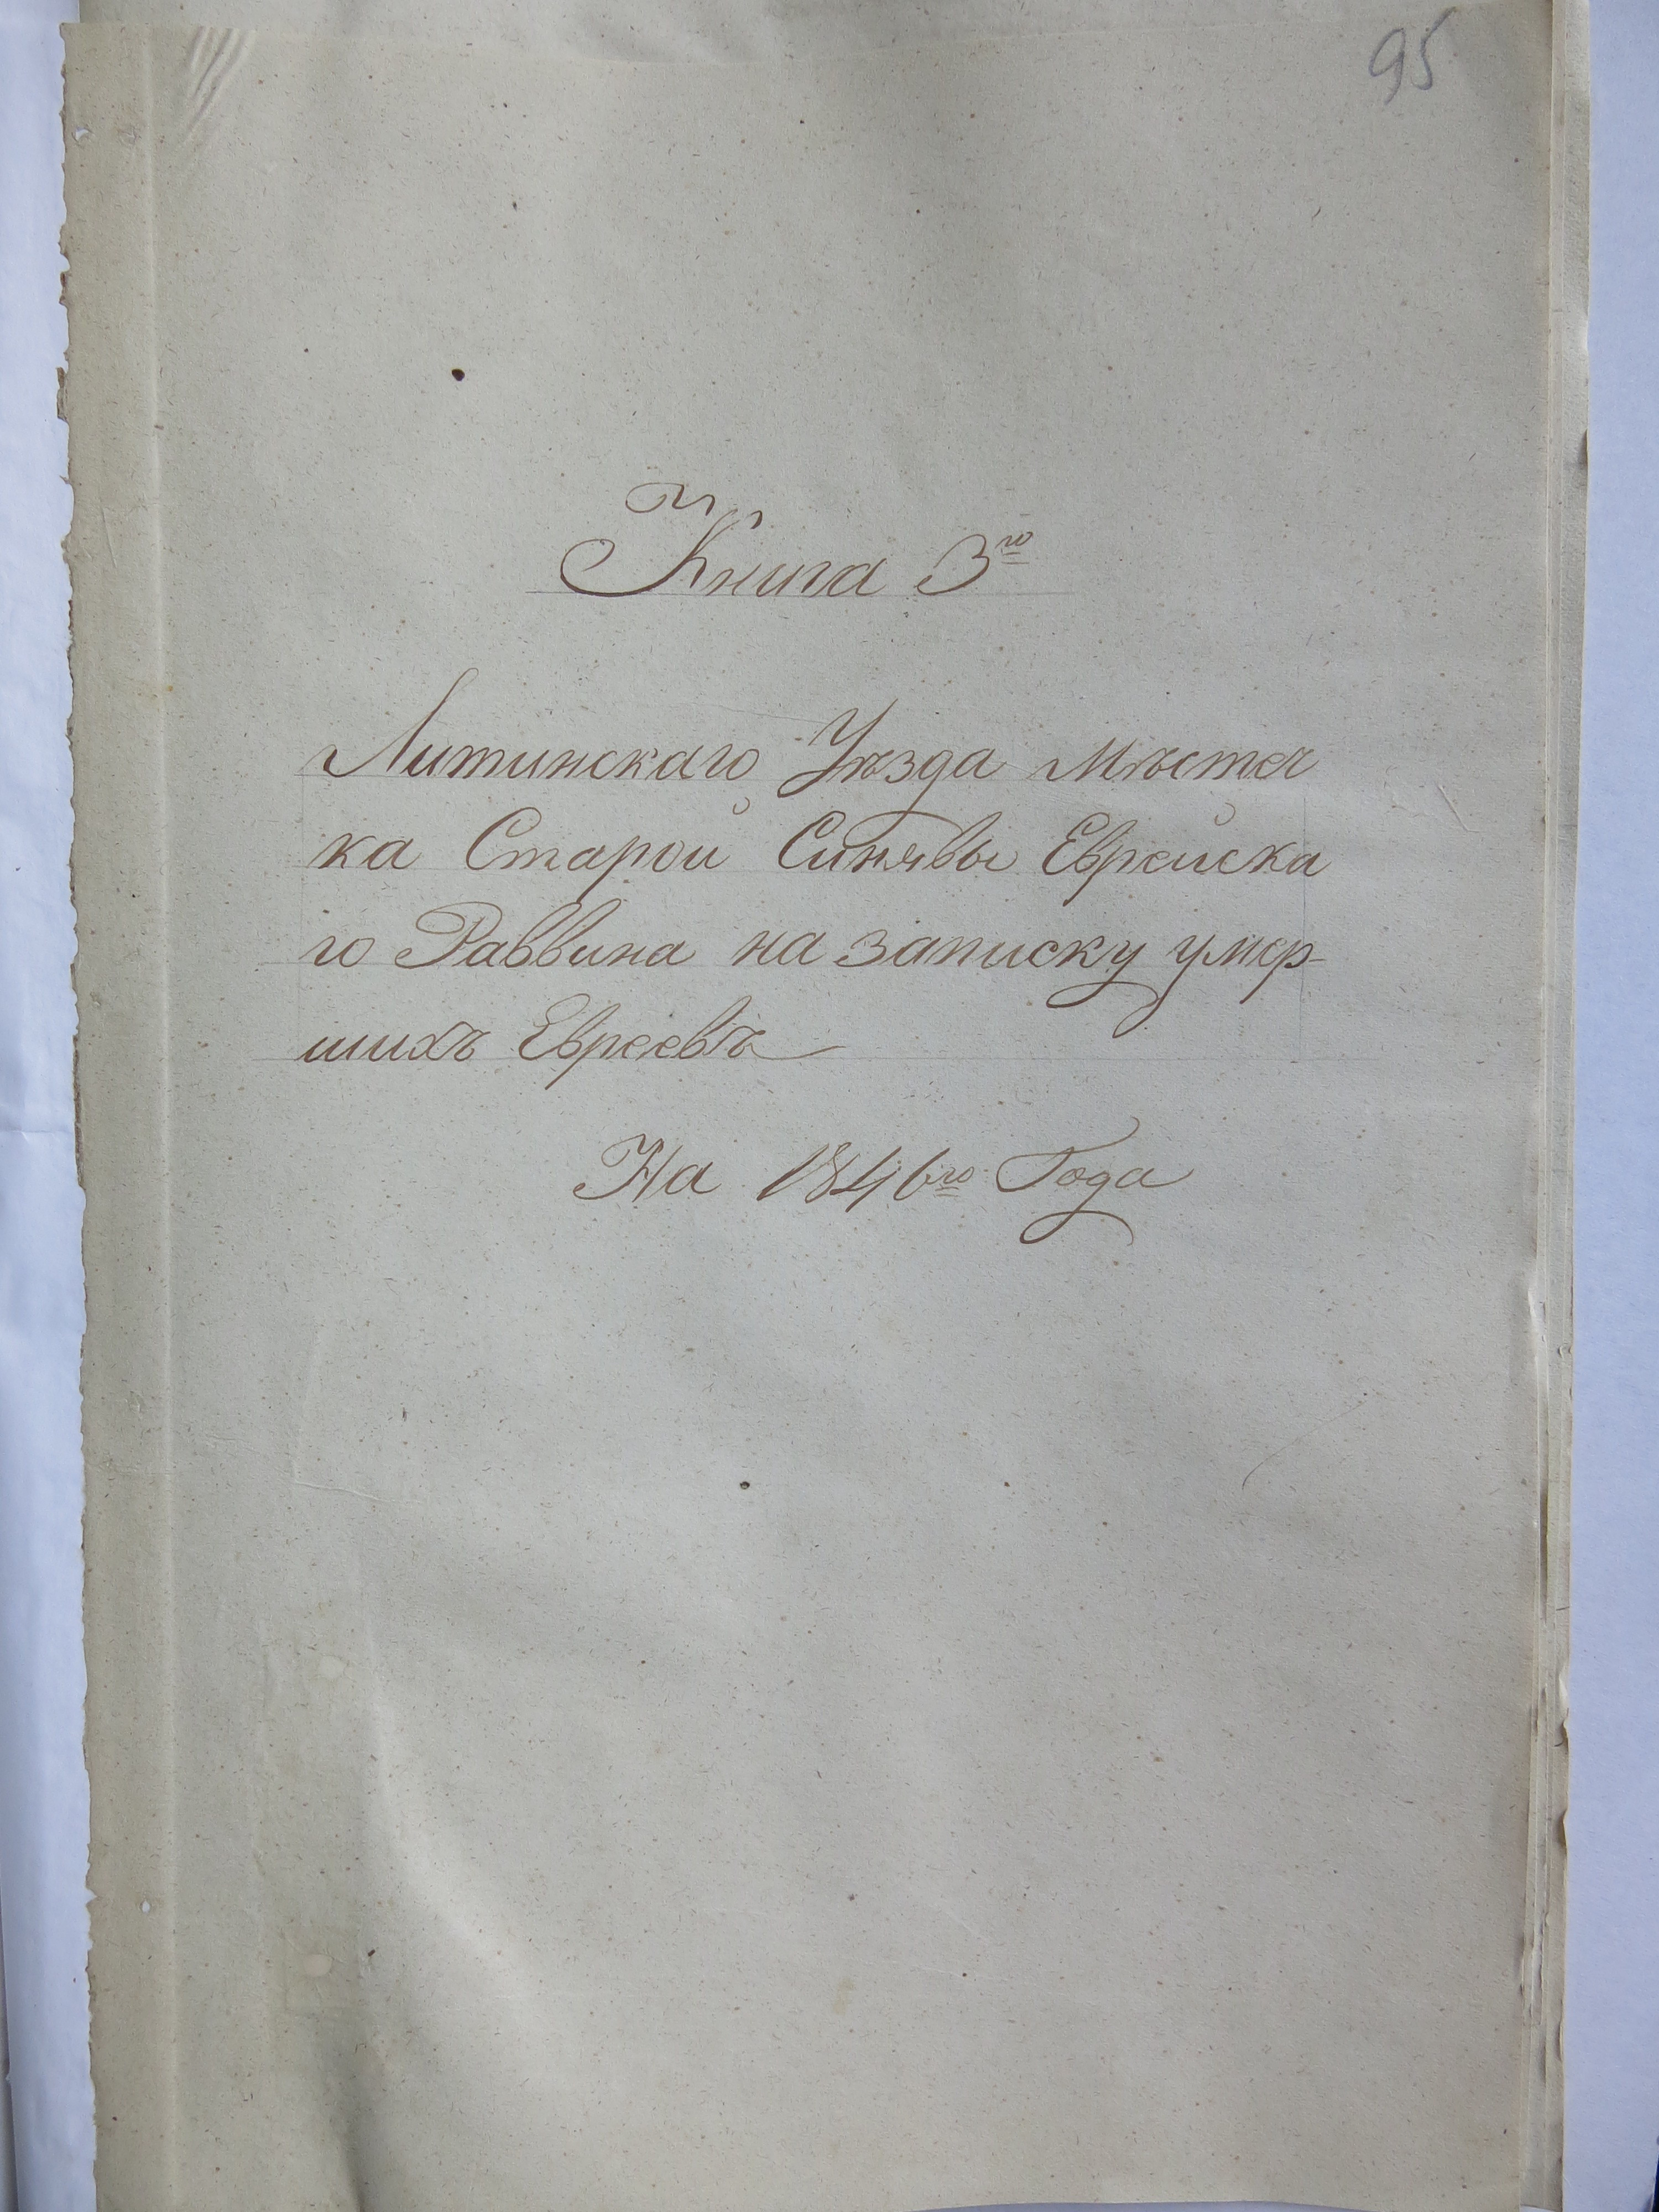 95
Книга 3го
Литинскаго Уѣзда Мѣстеч
ка Старой Синявы Еврейска
го Раввина на записку умер-
шихъ Евреевъ
На 1846го Года